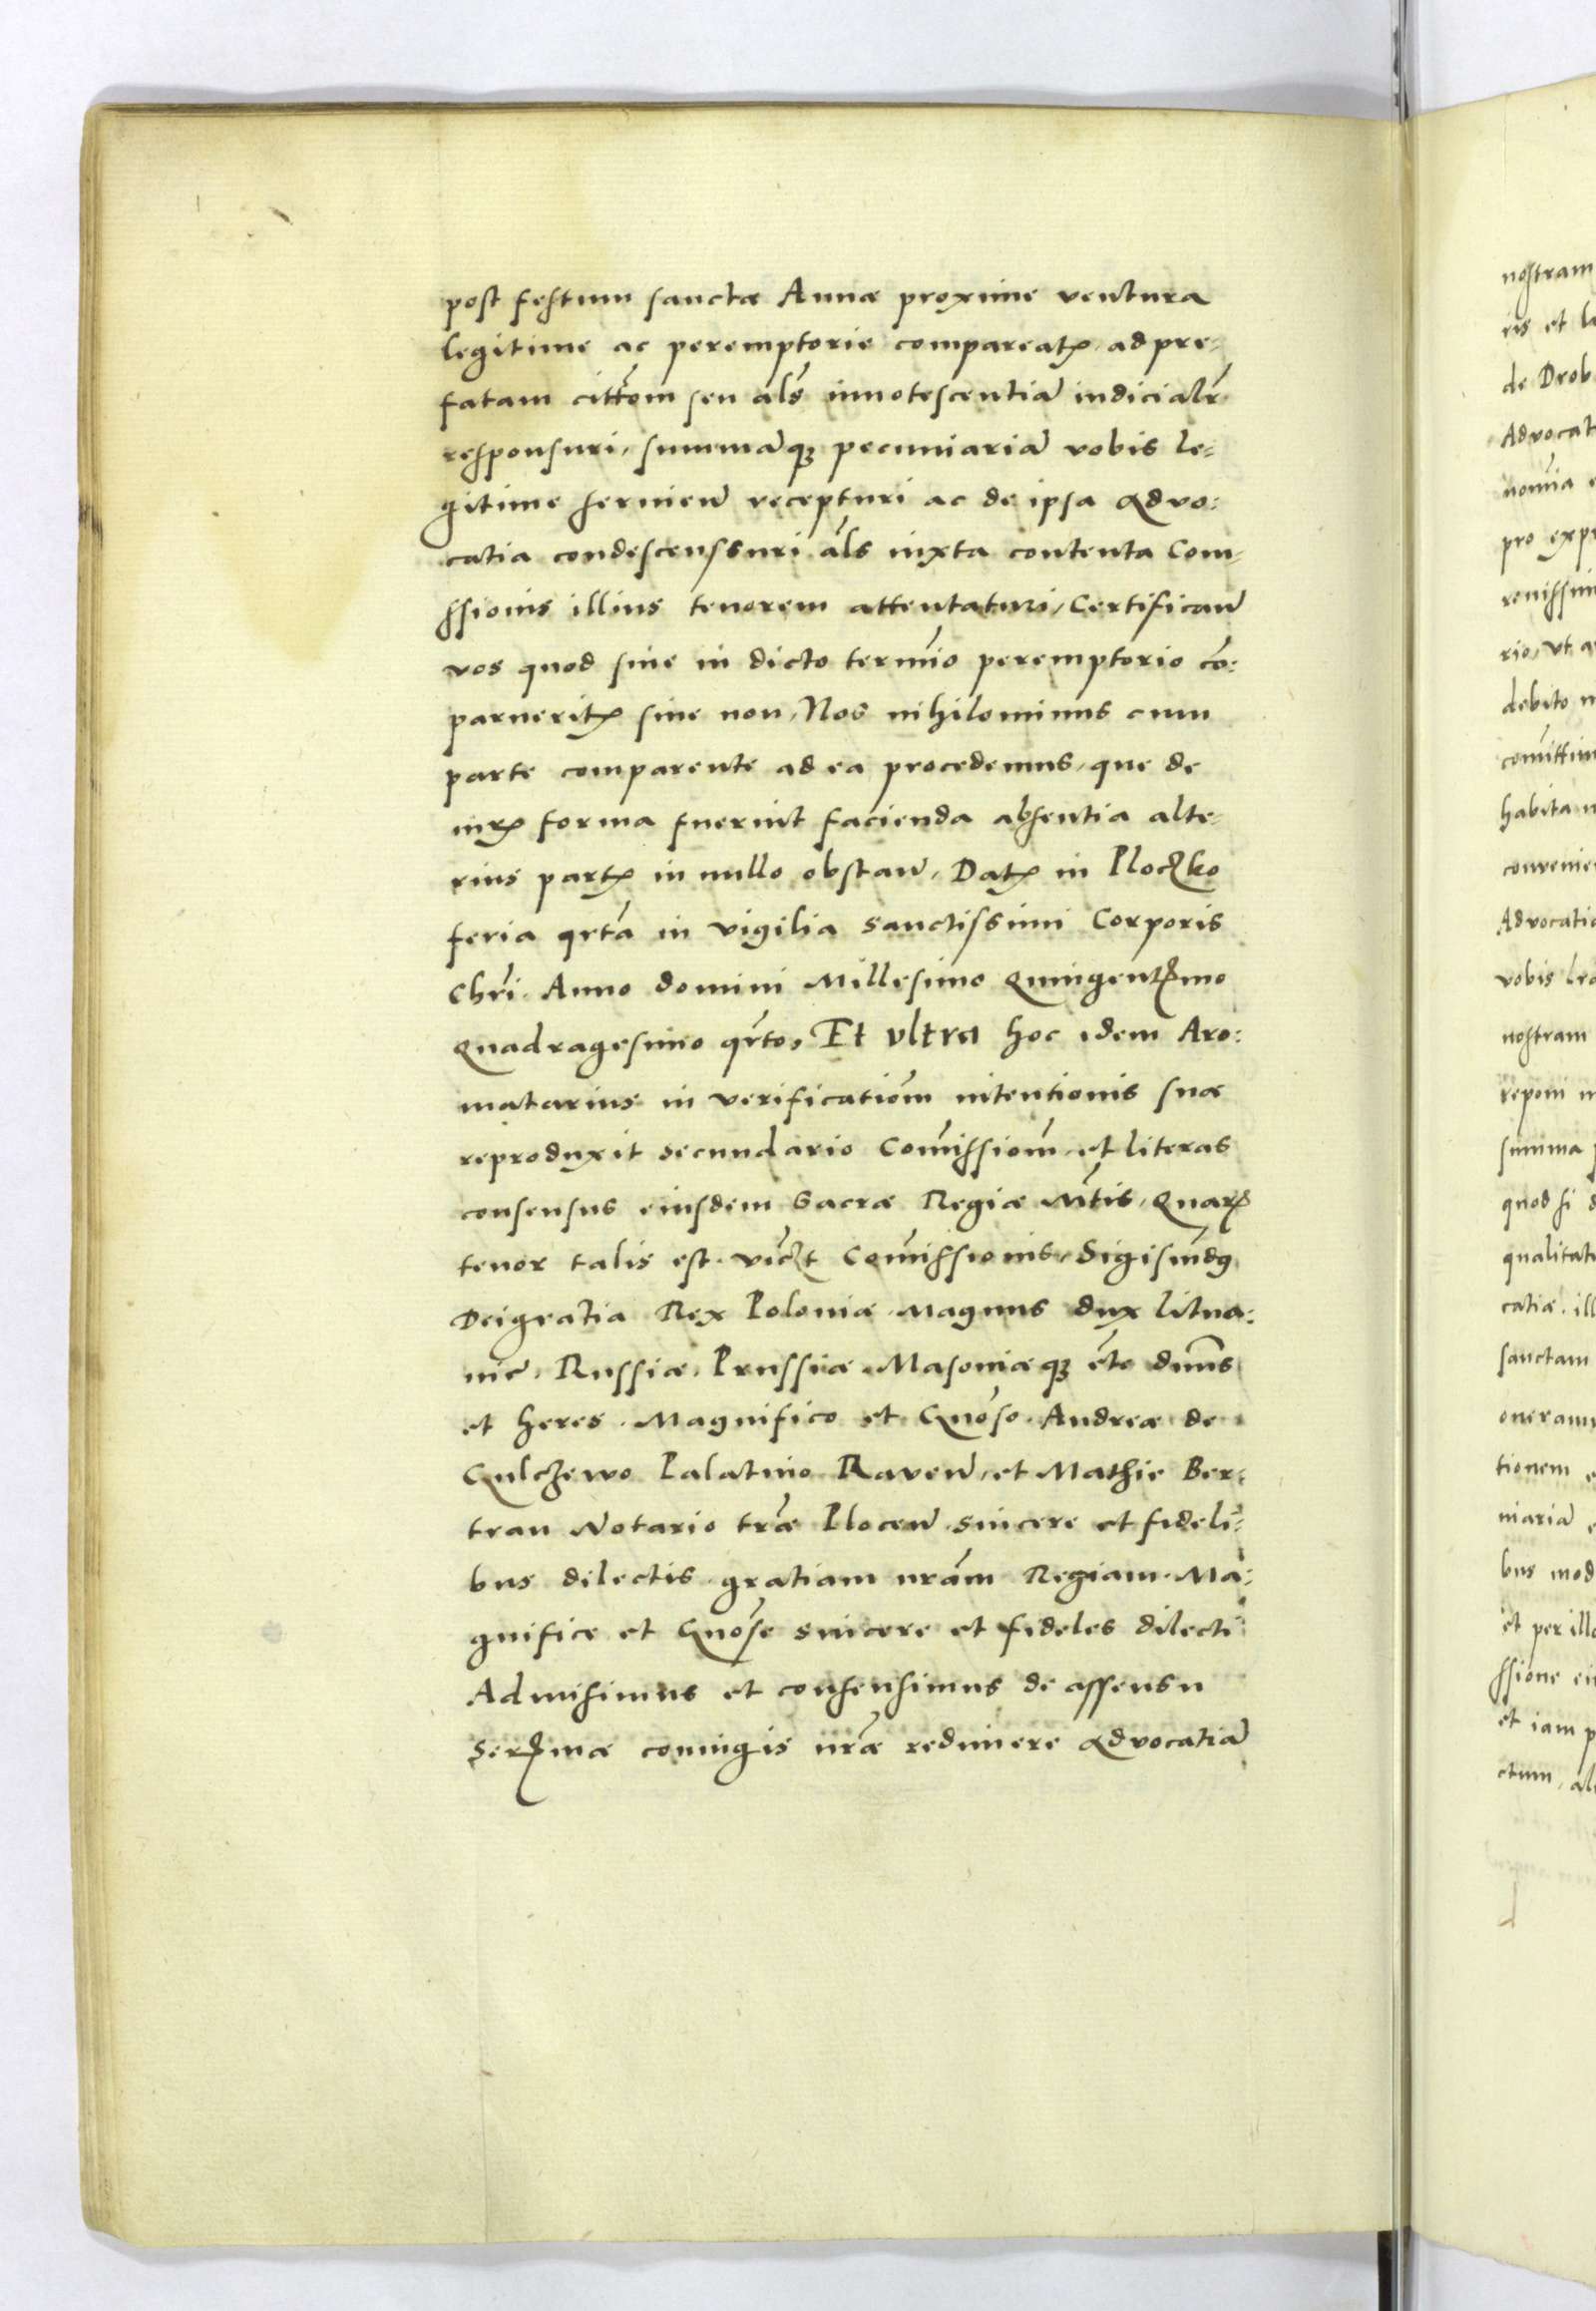 post festum sanctæ Annæ proxime ventura
legitime ac peremptorie compareatꝭ ad pre-
fatam citt̃om seu al̃s innotescentiã iudicialr̃
responsuri, summãqꝫ pecuniariã vobis le-
gitime servieñ recepturi ac de ipsa advo-
catia condescenssuri al̃s iuxta contenta Com-
ssionis illius tenorem attentaturi, Certificañ
vos quod sive in dicto termĩo peremptorio cõ-
parueritꝭ sive non, Nos nihilominus cum
parte comparente ad ea procedemus, que de
iurꝭ forma fuerint facienda absentia alte-
rius partꝭ in nullo obstañ, Datꝭ in Ploczko
feria qrtã in vigilia sanctissimi Corporis
Chrĩ. Anno domini Millesimo Quingentꝭmo
Quadragesimo qrt̃o, Et ultra hoc idem Aro-
matarius in verificatiõm intentionis suæ
reproduxit secundario Com̃issiom̃ et literas
consensus eiusdem Sacræ Regiæ Mt̃is, Quarꝭ
tenor talis est. vic̃zt Com̃issionis, Sigism̃dꝰ
Dei gratia Rex Poloniæ Magnus dux Litua-
nie, Russiæ, Prussiæ, Masoviæqꝫ et̃c dñns
et heres. Magnifico et Gnõso Andreæ de
Gulczewo Palatino Raveñ, et Mathie Ber-
tran Notario tr̃æ Ploceñ sincere et fideli-
bus dilectis gratiam nr̃am Regiam. Ma-
gnifice et Gnõse sincere et fideles dilecti
Admisimus et consensimus de assensu
Serꝭmæ coniugis nr̃æ redimere advocatiã
nostram
de Drob
Advocat
debito
Advocatia
nostram
summa
sanctam
tionem
et per ill